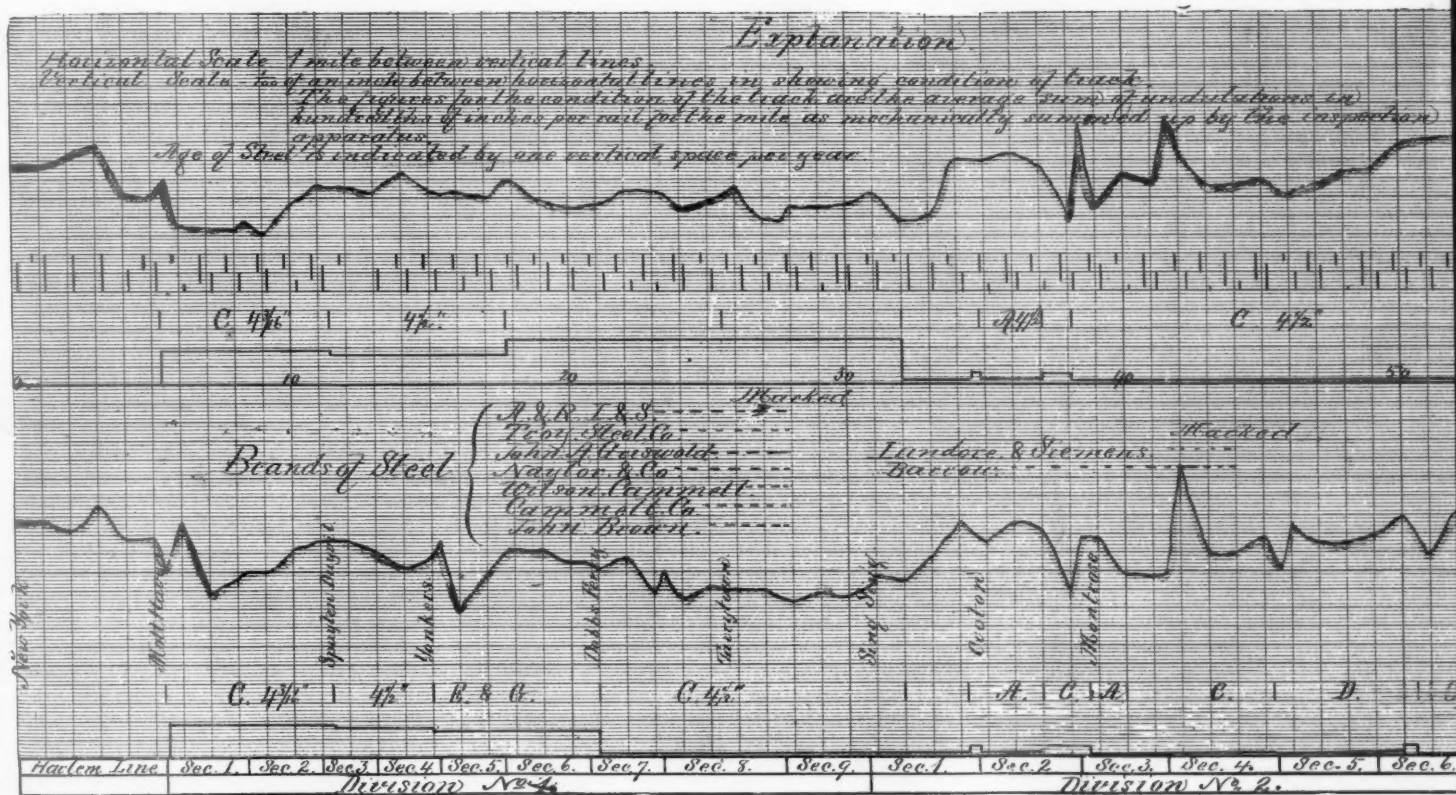 Explanation.
Horizontal Scale 1 mile between vertical lines.
Vertical Scale 1/100 of an inch between horizontal lines in showing condition of track.
The figures for the condition of the track are the average sum of undulations in
hundredths of inches per rail for the mile as mechanically summed up by the inspection
apparatus.
Age of Steel is indicated by one vertical space per year.
C. 4 4½" A 4½ C 4½"
0 10 20 30 40 50
Marked
Brands of Steel
A. & R. I. & S.
Troy Steel Co
John A Griswold
Naylor & Co
Wilson Cammell.
Cammell Co
John Brown.
Marked
Landore & Siemens.
Barrow.
New York
Mott Haven
Spuyten Duyvil
Yonkers
Dobbs Ferry
Tarrytown
Sing Sing
Croton
Montrose
C. 4½" & G. C. 4½" A. C. A. C. D.
Harlem Line Sec. 1. Sec. 2. Sec. 3 Sec. 4 Sec. 5. Sec. 6. Sec. 7. Sec. 8. Sec. 9. Sec. 1. Sec. 2 Sec. 3. Sec. 4. Sec. 5. Sec. 6.
Division No 1. Division No 2.